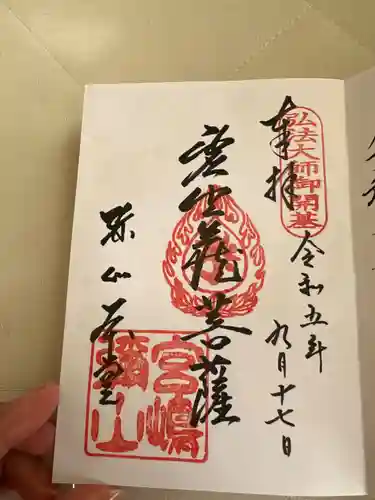 奉拝
弘法大師御開基
令和五年
九月十七日
虚空蔵菩薩
弥山本堂
宮嶋
彌山